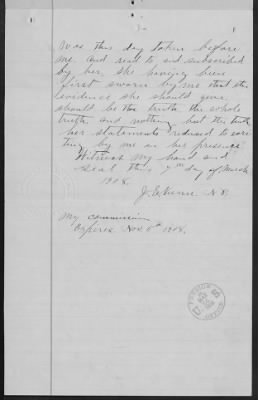 Was this day taken before
me, and read to, and subscribed
by her, she having been
first sworn by me that the
evidence she should give,
should be the truth the whole
truth and nothing but the truth
her statements reduced to wri
ting by me in her presence
Witness my hand and
seal this 7th day of March
1908.
N.P.
My commission
Expires Nov. 8th 1908.